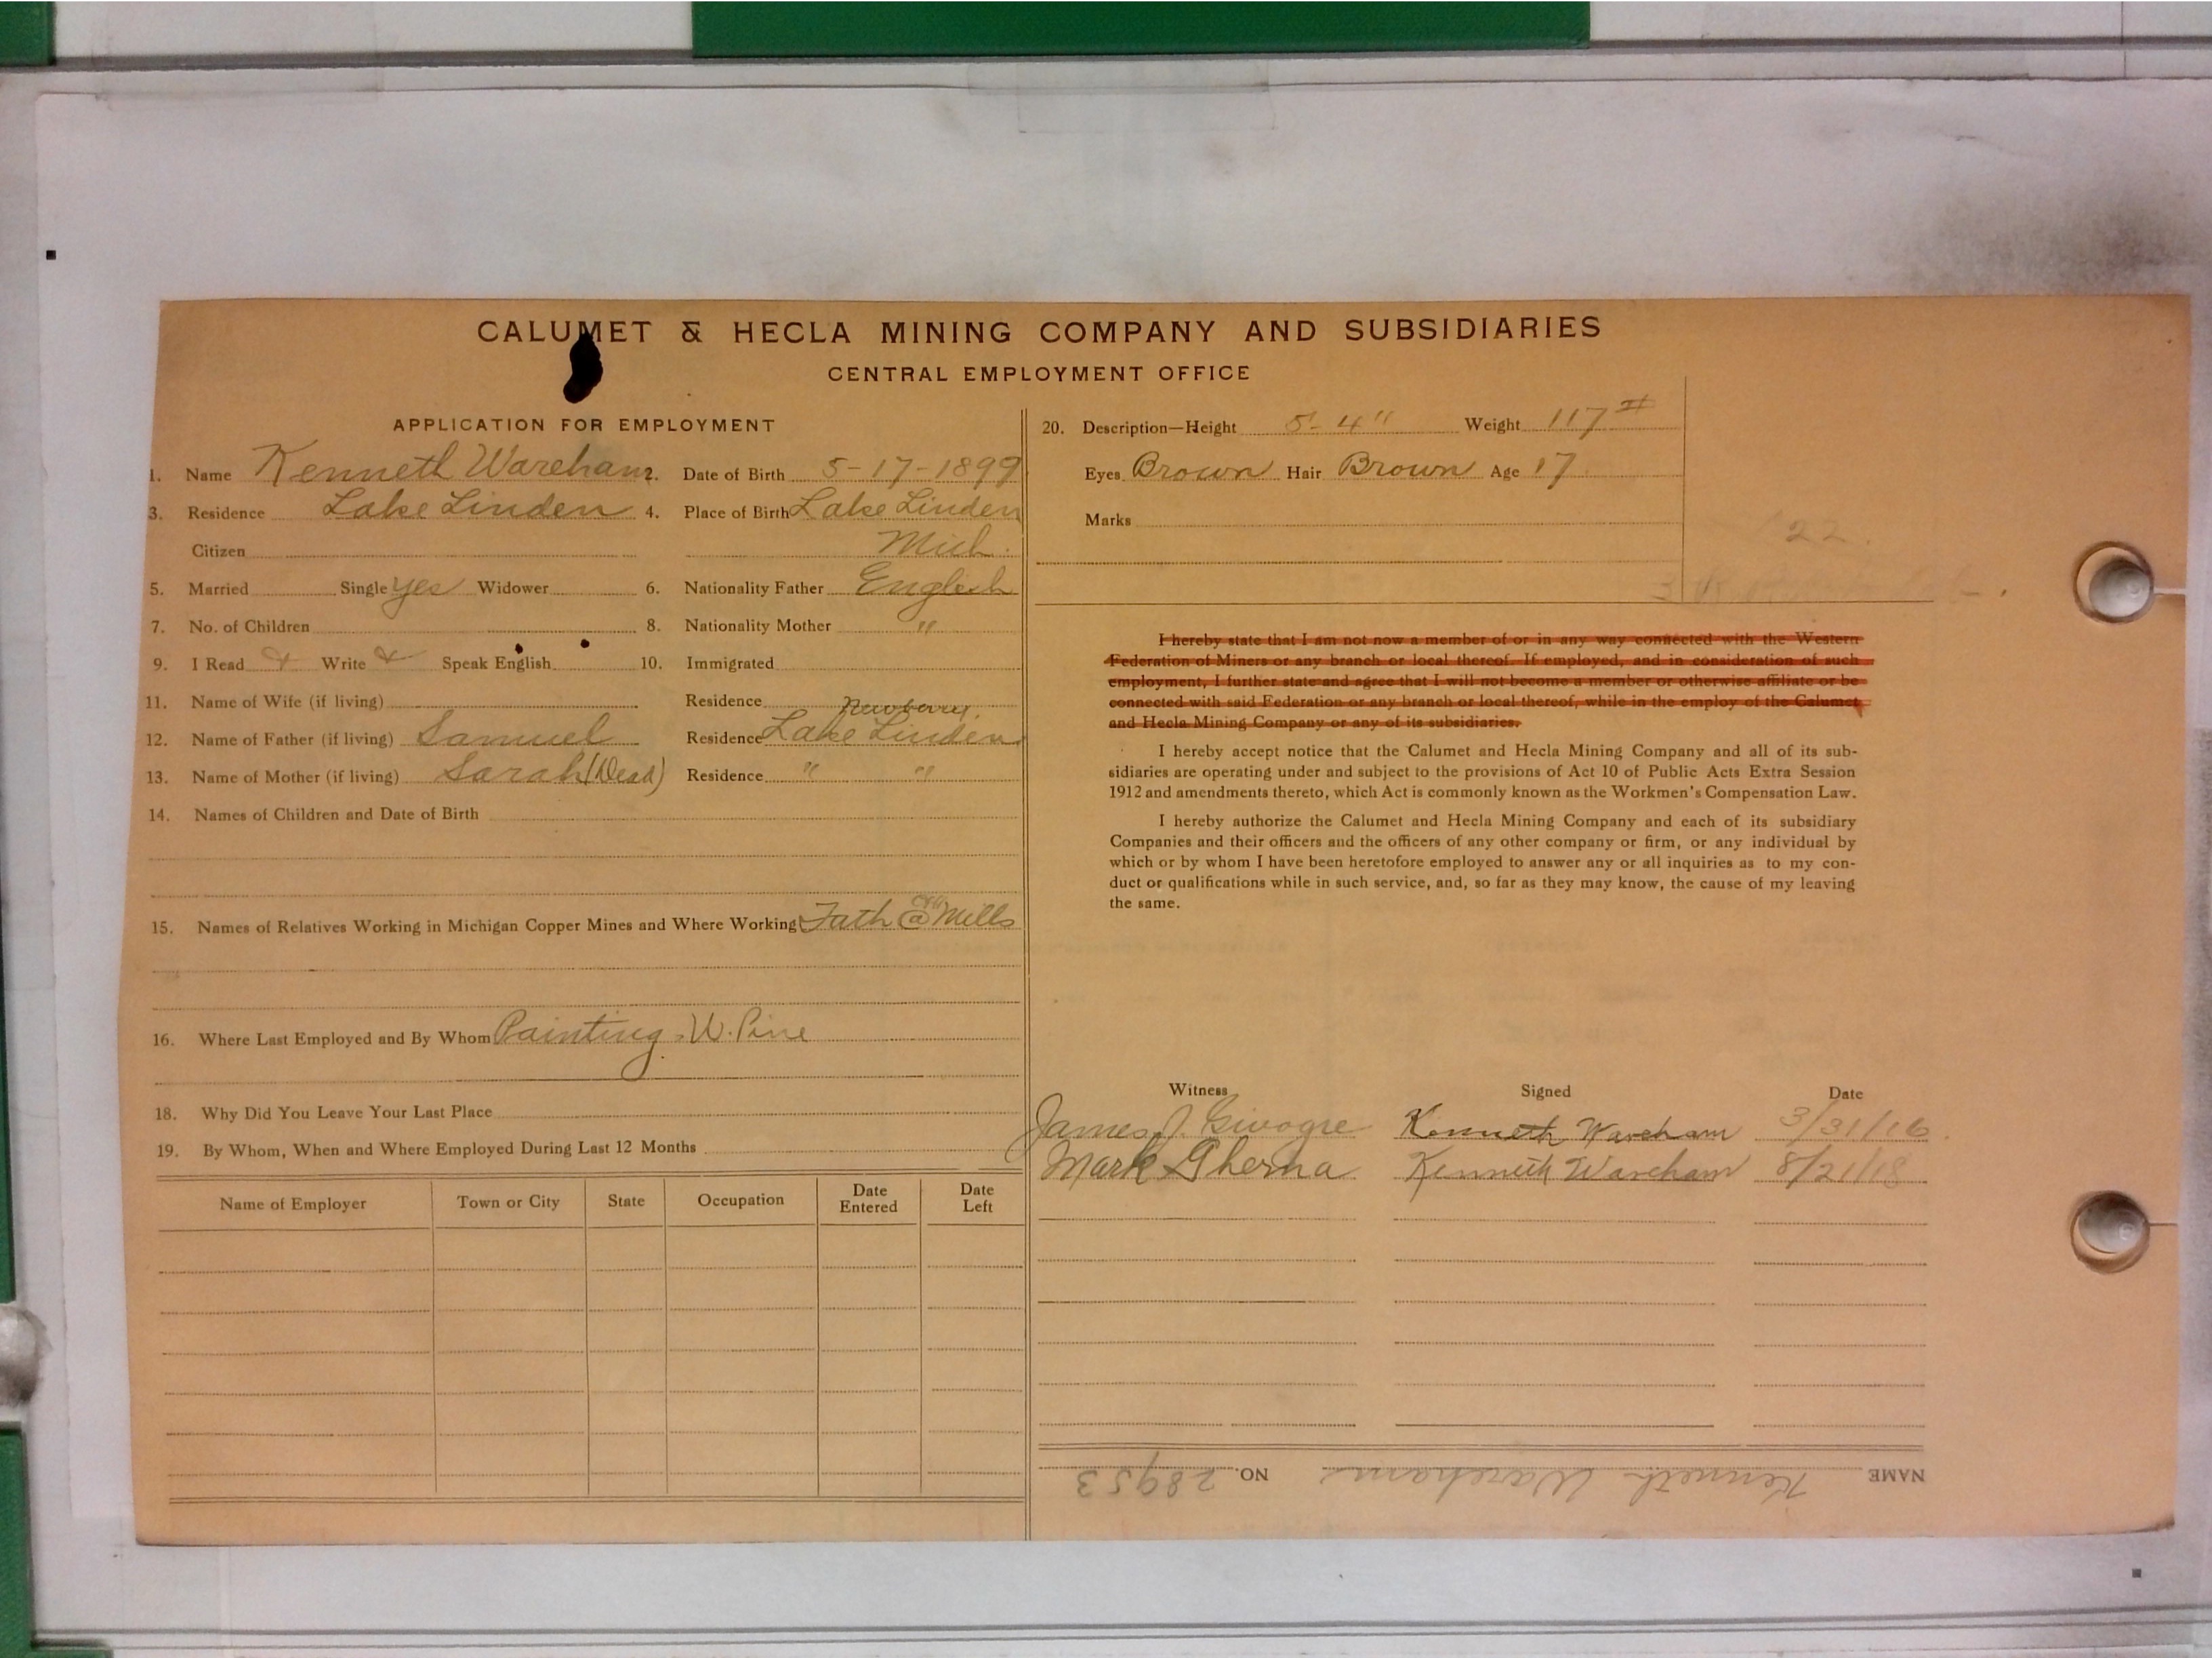 CALUMET & HECLA MINING COMPANY AND SUBSIDIARIES
CENTRAL EMPLOYMENT OFFICE
APPLICATION FOR EMPLOYMENT
1. Name Kenneth Wareham 2. Date of Birth 5-17-1899
3. Residence Lake Linden 4. Place of Birth Lake Linden
Citizen Mich.
5. Married Single yes Widower 6. Nationality Father English
7. No. of Children 8. Nationality Mother "
9. I Read Write Speak English 10. Immigrated
11. Name of Wife (if living) Residence
Newberry
12. Name of Father (if living) Samuel Residence Lake Linden
13. Name of Mother (if living) Sarah (Dead) Residence " "
14. Names of Children and Date of Birth
15. Names of Relatives Working in Michigan Copper Mines and Where Working Fath @ Mills
16. Where Last Employed and By Whom Painting - W. Pine
18. Why Did You Leave Your Last Place
19. By Whom, When and Where Employed During Last 12 Months
Name of Employer Town or City State Occupation Date Entered Date Left
20. Description—Height 5'- 4" Weight 117 #
Eyes Brown Hair Brown Age 17
Marks
22.
I hereby state that I am not now a member of or in any way connected with the Western
Federation of Miners or any branch or local thereof. If employed, and in consideration of such
employment, I further state and agree that I will not become a member or otherwise affiliate or be
connected with said Federation or any branch or local thereof, while in the employ of the Calumet
and Hecla Mining Company or any of its subsidiaries.
I hereby accept notice that the Calumet and Hecla Mining Company and all of its sub-
sidiaries are operating under and subject to the provisions of Act 10 of Public Acts Extra Session
1912 and amendments thereto, which Act is commonly known as the Workmen's Compensation Law.
I hereby authorize the Calumet and Hecla Mining Company and each of its subsidiary
Companies and their officers and the officers of any other company or firm, or any individual by
which or by whom I have been heretofore employed to answer any or all inquiries as to my con-
duct or qualifications while in such service, and, so far as they may know, the cause of my leaving
the same.
Witness Signed Date
James J. Givogre Kenneth Wareham 3/31/16
Mark Gherna Kenneth Wareham 8/21/18
NAME Kenneth Wareham NO. 28953